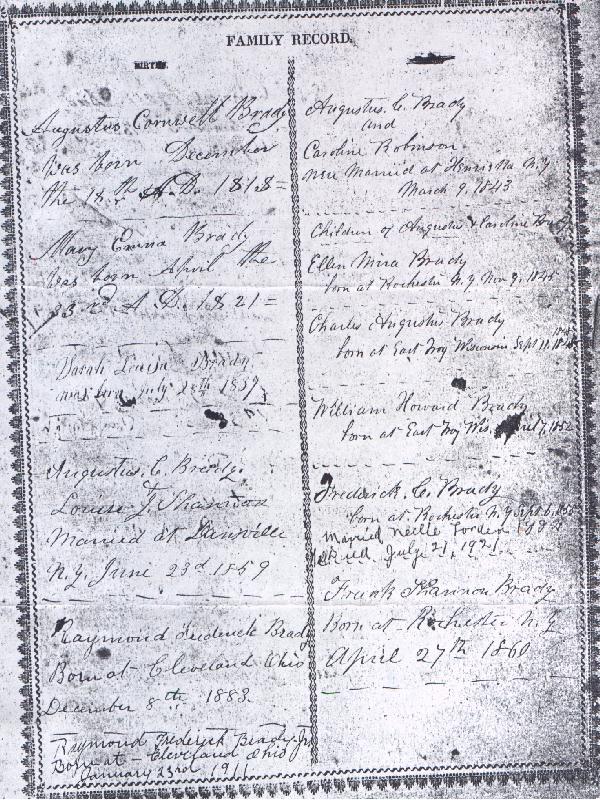 FAMILY RECORD.
BIRTHS.
Augustus Cornwell Brady
was born December
the 18th A.D. 1818=
Mary Emma Brady
was born April the
23rd A D. 1821=
Sarah Louisa Brady
was born July
Augustus. C. Brady.
Louise J. Shannon
Married at
N.Y. June 23d 1859
Raymond Frederick Brady
Born at Cleveland Ohio
December 8th 1883.
Raymond Frederick Brady Jr
Born at - Cleveland Ohio
January 23rd 1911
Augustus. C. Brady
and
Caroline Robinson
were Married at Henrietta N.Y
March 9, 1843
Children of Augustus & Caroline Brady
Ellen Mira Brady
born at Rochester N.Y Nov 9,
Charles Augustus Brady
born at East Troy Wisconsin Sept 11,
William Howard Brady
born at East Troy Wis
Frederick. C. Brady
born at Rochester N.Y Sept 6,
Married Nelle
Died July 21, 1921
Frank Shannon Brady
Born at Rochester N.Y
April 27th 1860